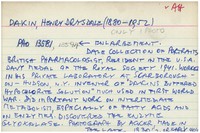 A4
DAKIN, HENRY DRYSDALE (1880-1952)
ONLY 1 PHOTO
PHO 15581, ENLARGEMENT.
DATE COLLECTION OF PORTRAITS
BRITISH PHARMACOLOGIST RESIDENT IN THE U.S.A.
DAVY MEDAL OF THE ROYAL SOCIETY 1941. WORKED
IN HIS PRIVATE LABORATORY AT SCARBOROUGH-
ON-HUDSON, N.Y. INVENTOR OF DAKIN'S BUFFERED
HYPOCHLORITE SOLUTION MUCH USED IN FIRST WORLD
WAR. DID IMPORTANT WORK ON INTERMEDIATE
METABOLISM, ESPECIALLY OF FATTY ACIDS AND
ON ENZYMES. DISCOVERED THE ENZYME
GLYOXALASE. PHOTOGRAPH BY PACEY MADE IN
THE LATE 1930's